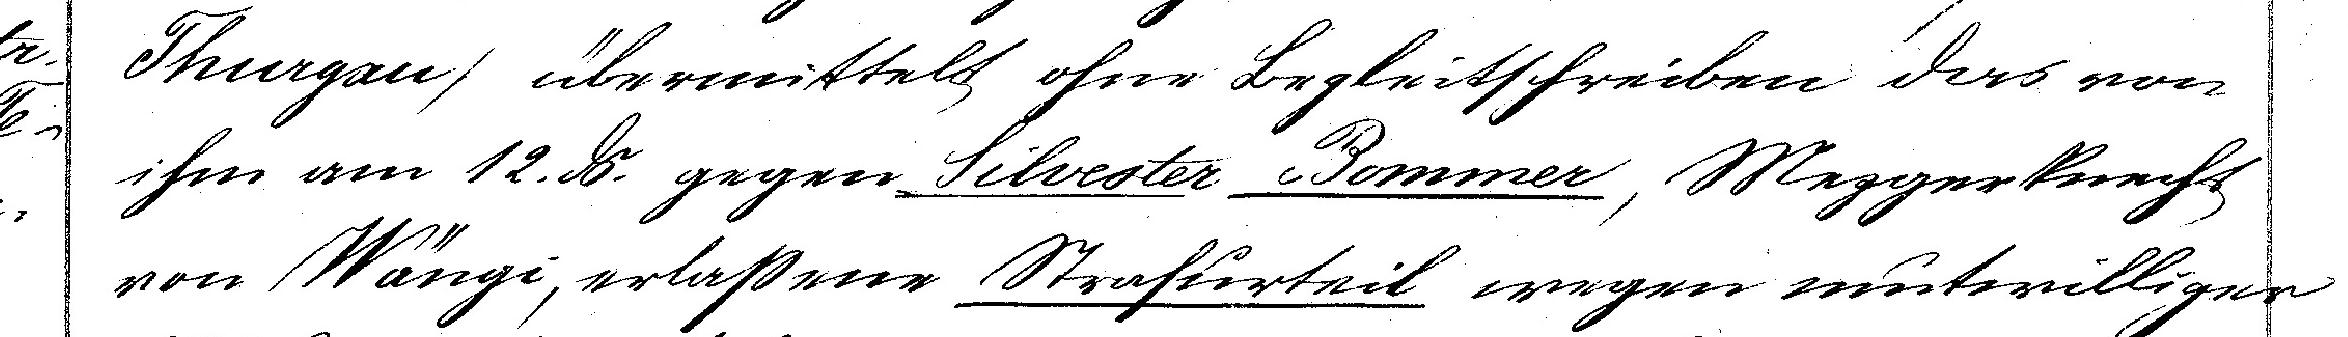 Thurgau) übermittelt ohne Begleitschreiben das von
ihm am 12. ds. gegen Silvester Bommer, Mezgerknecht
von Wängi, erlaßene Strafurteil wegen mutwilliger